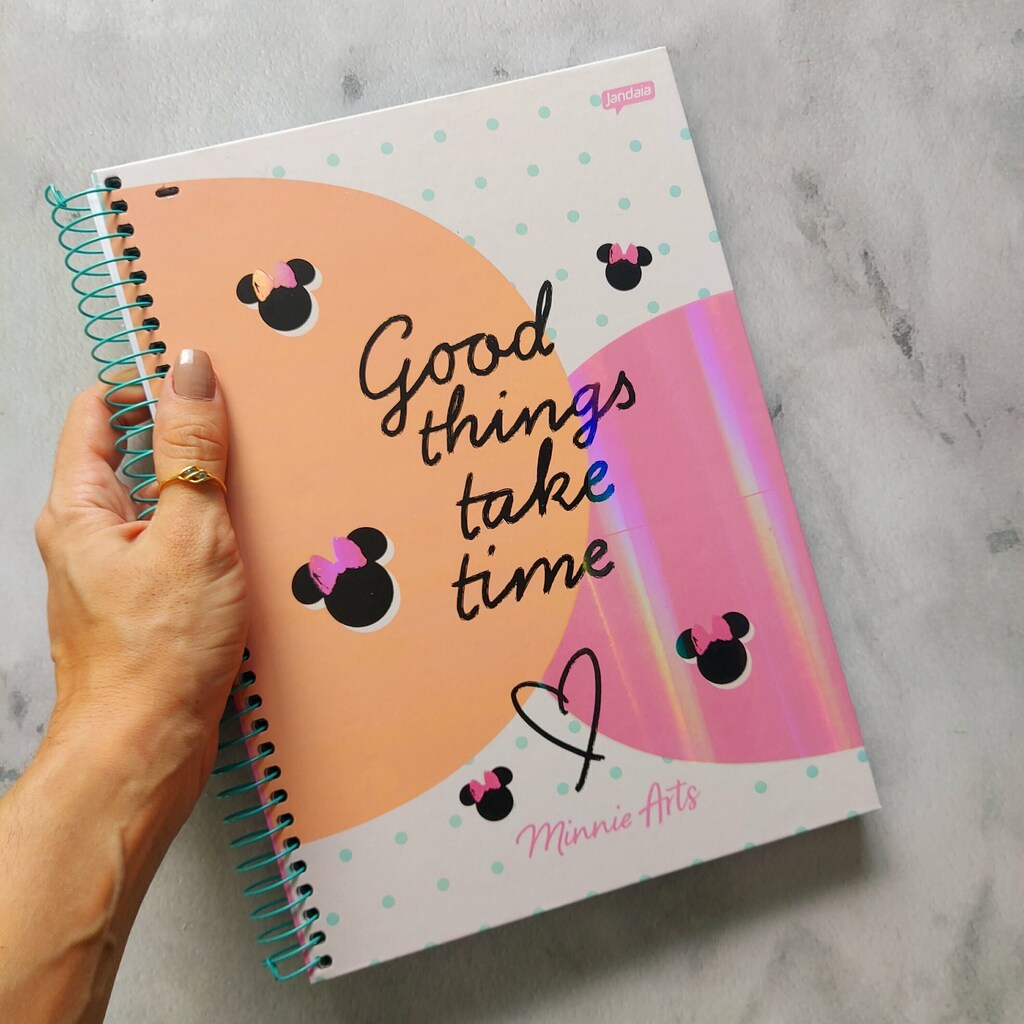 Jandaia
Good
things
take
time
Minnie Arts